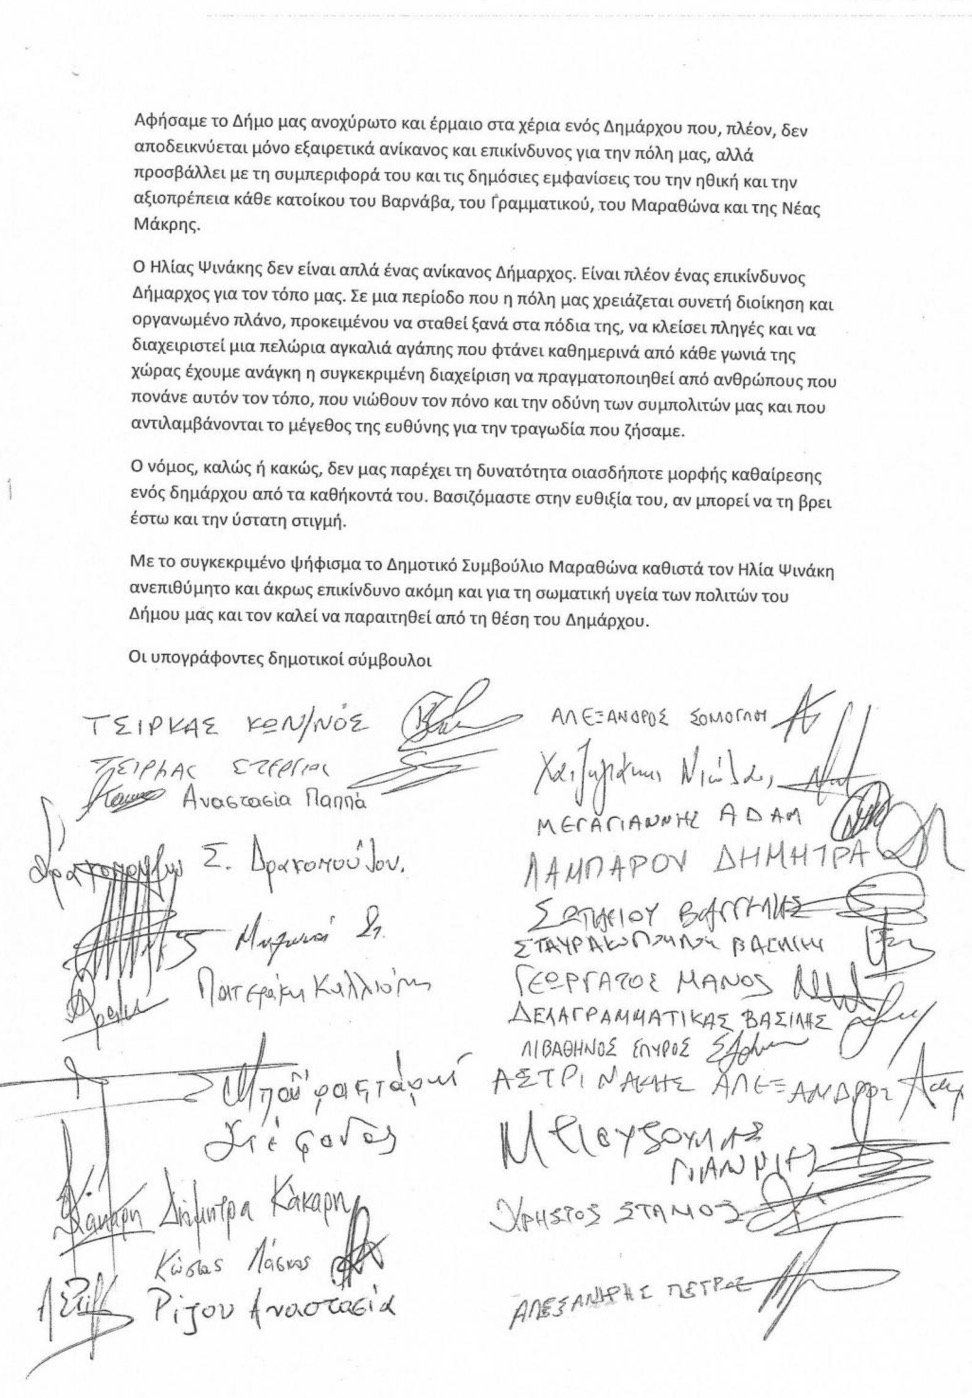 Αφήσαμε το Δήμο μας ανοχύρωτο και έρμαιο στα χέρια ενός Δημάρχου που, πλέον, δεν
αποδεικνύεται μόνο εξαιρετικά ανίκανος και επικίνδυνος για την πόλη μας, αλλά
προσβάλλει με τη συμπεριφορά του και τις δημόσιες εμφανίσεις του την ηθική και την
αξιοπρέπεια κάθε κατοίκου του Βαρνάβα, του Γραμματικού, του Μαραθώνα και της Νέας
Μάκρης.
Ο Ηλίας Ψινάκης δεν είναι απλά ένας ανίκανος Δήμαρχος. Είναι πλέον ένας επικίνδυνος
Δήμαρχος για τον τόπο μας. Σε μια περίοδο που η πόλη μας χρειάζεται συνετή διοίκηση και
οργανωμένο πλάνο, προκειμένου να σταθεί ξανά στα πόδια της, να κλείσει πληγές και να
διαχειριστεί μια πελώρια αγκαλιά αγάπης που φτάνει καθημερινά από κάθε γωνιά της
χώρας έχουμε ανάγκη η συγκεκριμένη διαχείριση να πραγματοποιηθεί από ανθρώπους που
πονάνε αυτόν τον τόπο, που νιώθουν τον πόνο και την οδύνη των συμπολιτών μας και που
αντιλαμβάνονται το μέγεθος της ευθύνης για την τραγωδία που ζήσαμε.
Ο νόμος, καλώς ή κακώς, δεν μας παρέχει τη δυνατότητα οιασδήποτε μορφής καθαίρεσης
ενός δημάρχου από τα καθήκοντά του. Βασιζόμαστε στην ευθιξία του, αν μπορεί να τη βρει
έστω και την ύστατη στιγμή.
Με το συγκεκριμένο ψήφισμα το Δημοτικό Συμβούλιο Μαραθώνα καθιστά τον Ηλία Ψινάκη
ανεπιθύμητο και άκρως επικίνδυνο ακόμη και για τη σωματική υγεία των πολιτών του
Δήμου μας και τον καλεί να παραιτηθεί από τη θέση του Δημάρχου.
Οι υπογράφοντες δημοτικοί σύμβουλοι
ΤΣΙΡΚΑΣ ΚΩΝ/ΝΟΣ
ΤΣΙΡΚΑΣ ΣΤΕΡΓΙΟΣ
Αναστασία Παππά
Σ. Δρακοπούλου.
Πατεράκη Καλλιόπη
Στέφανος
Δήμητρα Κακαρη
Κώστας Λάσκος
Ρίζου Αναστασία
ΑΛΕΞΑΝΔΡΟΣ
Νικόλαος
ΜΕΓΑΓΙΑΝΝΗΣ ΑΔΑΜ
ΛΑΜΠΑΡΟΥ ΔΗΜΗΤΡΑ
ΣΤΑΥΡΑΚΟΠΟΥΛΟΥ ΒΑΣΙΛΙΚΗ
ΓΕΩΡΓΑΤΟΣ ΜΑΝΟΣ
ΔΕΛΑΓΡΑΜΜΑΤΙΚΑΣ ΒΑΣΙΛΗΣ
ΛΙΒΑΘΗΝΟΣ ΣΠΥΡΟΣ
ΑΣΤΡΙΝΑΚΗΣ ΑΛΕΞΑΝΔΡΟΣ
ΓΙΑΝΝΗΣ
ΧΡΗΣΤΟΣ ΣΤΑΜΟΣ
ΠΕΤΡΟΣ